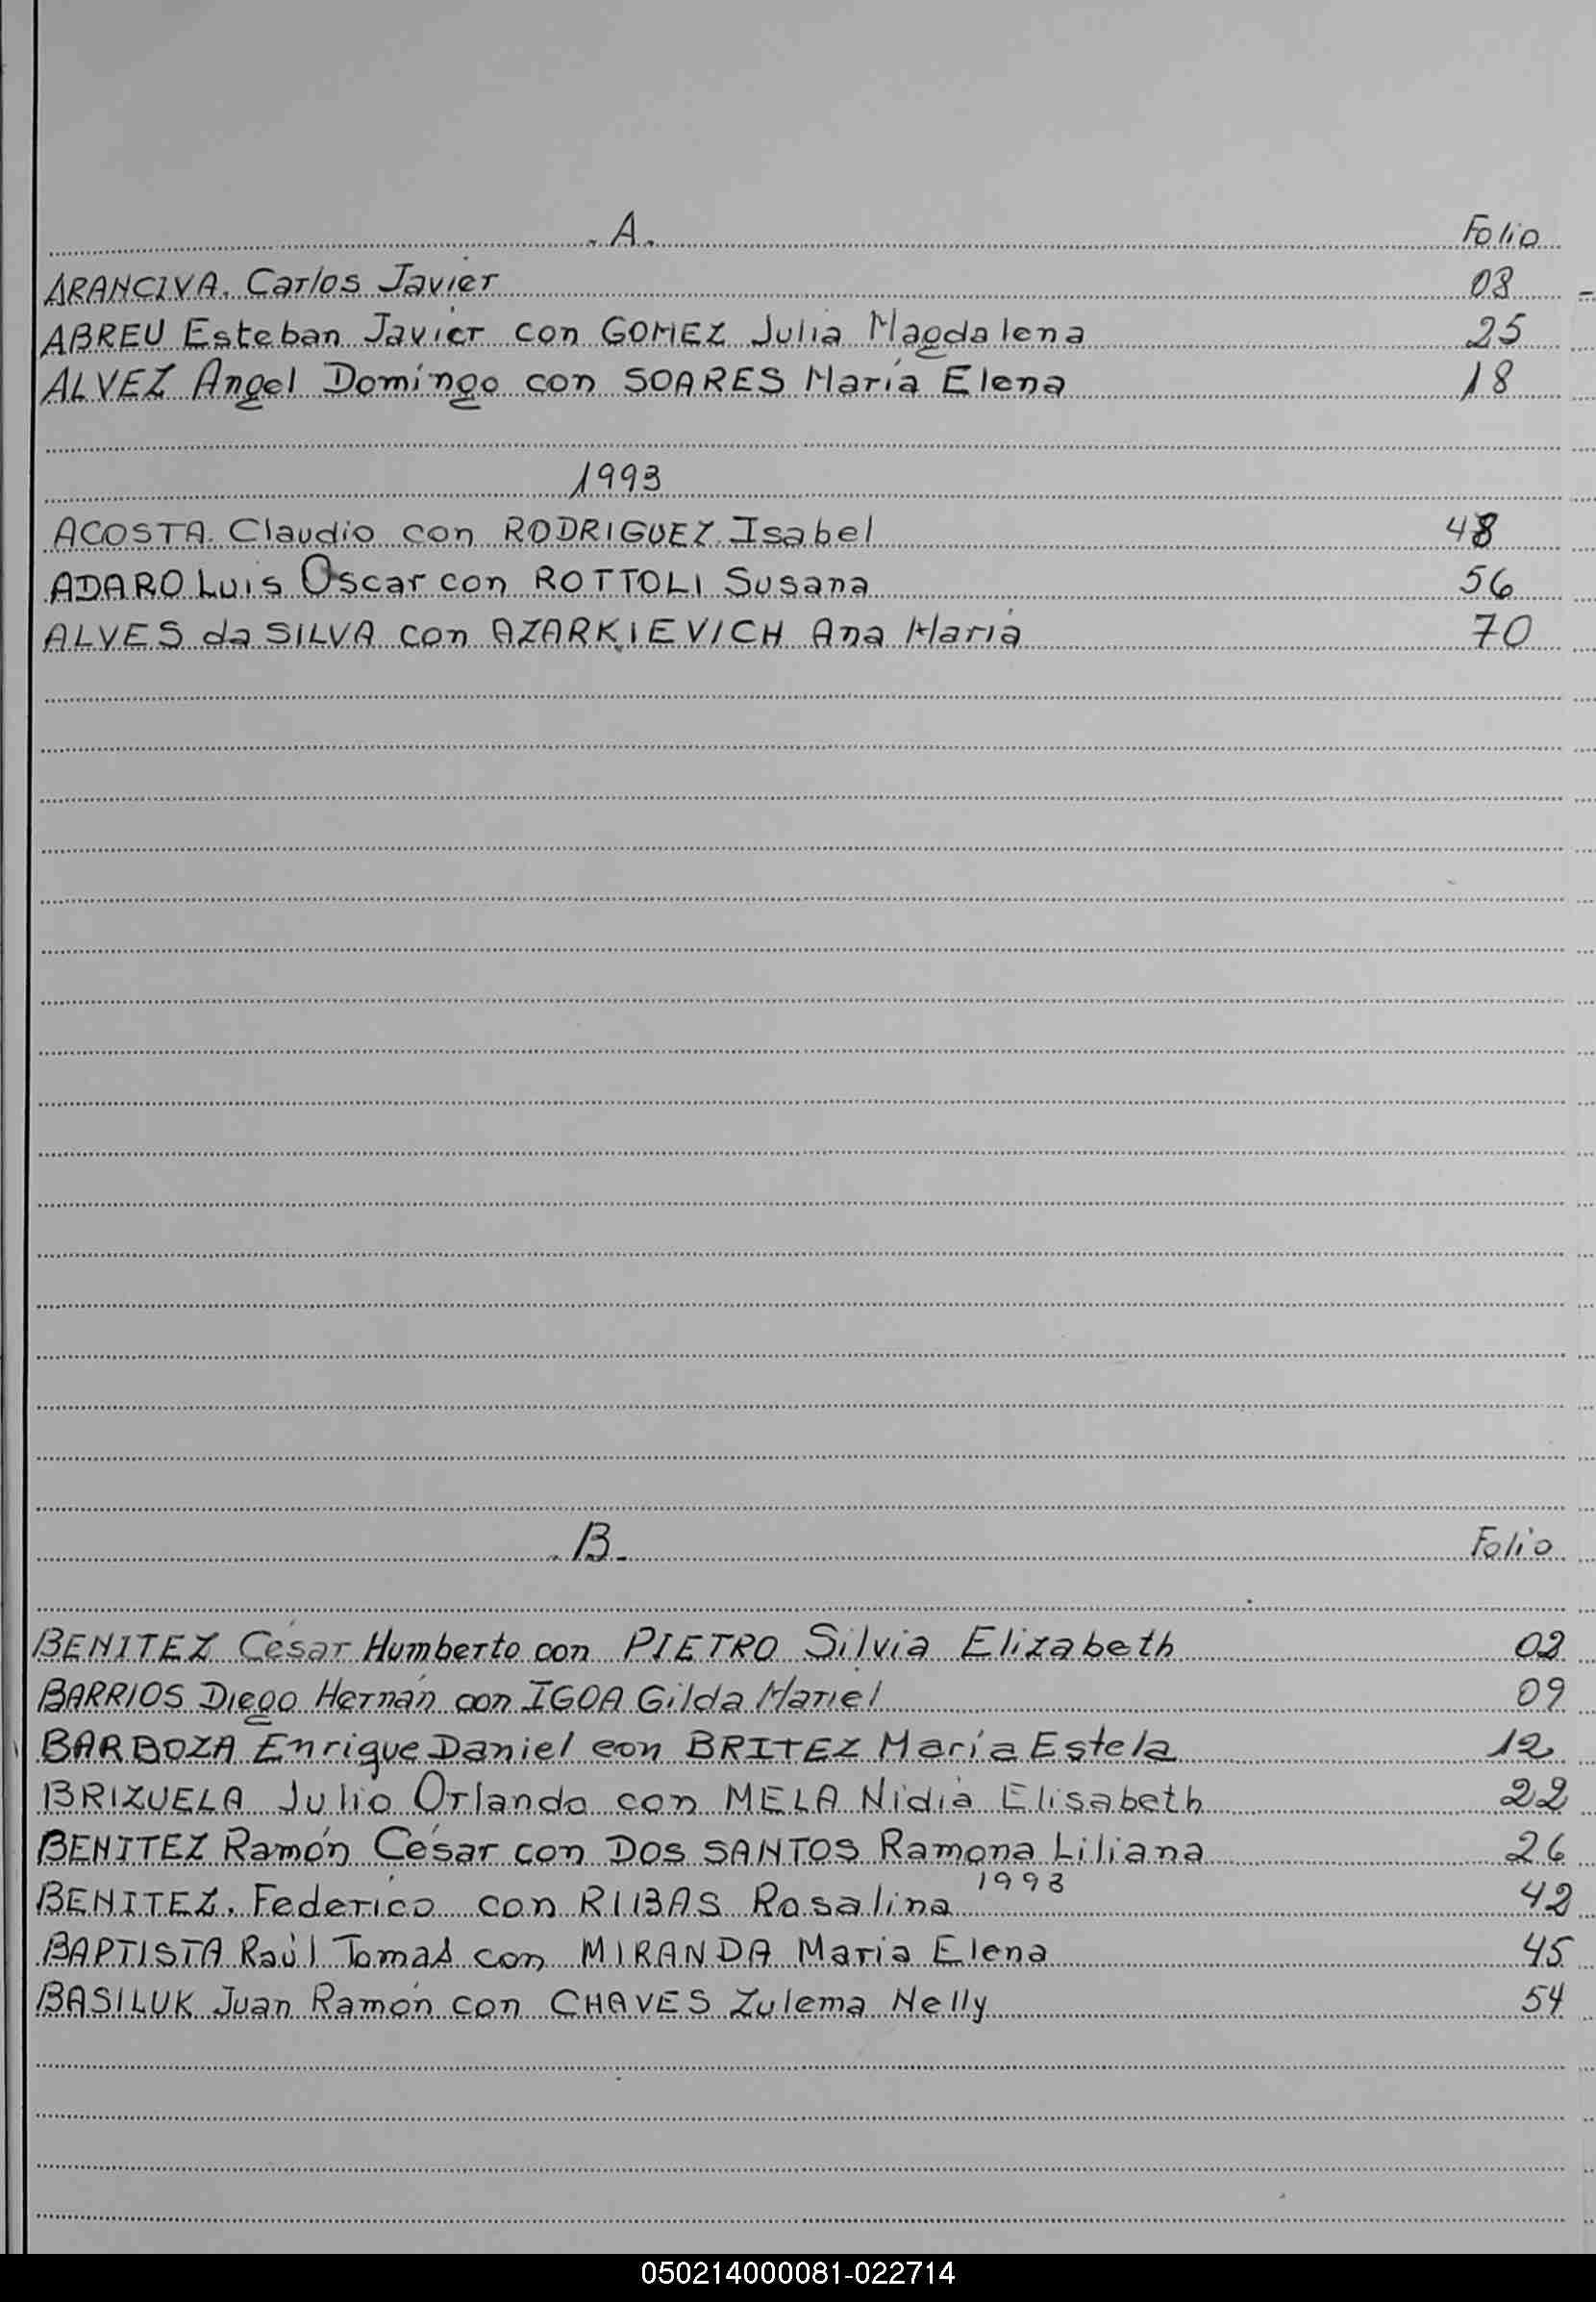 . A. Folio
ARANCIVA. Carlos Javier 08
ABREU Esteban Javier con GOMEZ Julia Magdalena 25
ALVEZ Angel Domingo con SOARES María Elena 18
1993
ACOSTA. Claudio con RODRIGUEZ. Isabel 48
ADARO Luis Oscar con ROTTOLI Susana 56
ALVES da SILVA con AZARKIEVICH Ana María 70
. B. Folio
BENITEZ César Humberto con PIETRO Silvia Elizabeth 02
BARRIOS Diego Hernán con IGOA Gilda Mariel 09
BARBOZA Enrique Daniel con BRITEZ María Estela 12
BRIZUELA Julio Orlando con MELA Nidia Elisabeth 22
BENITEZ Ramón César con DOS SANTOS Ramona Liliana 26
1993
BENITEZ. Federico con RIBAS Rosalina 42
BAPTISTA Raúl Tomas con MIRANDA Maria Elena 45
BASILUK Juan Ramón con CHAVES Zulema Nelly 54
050214000081-022714